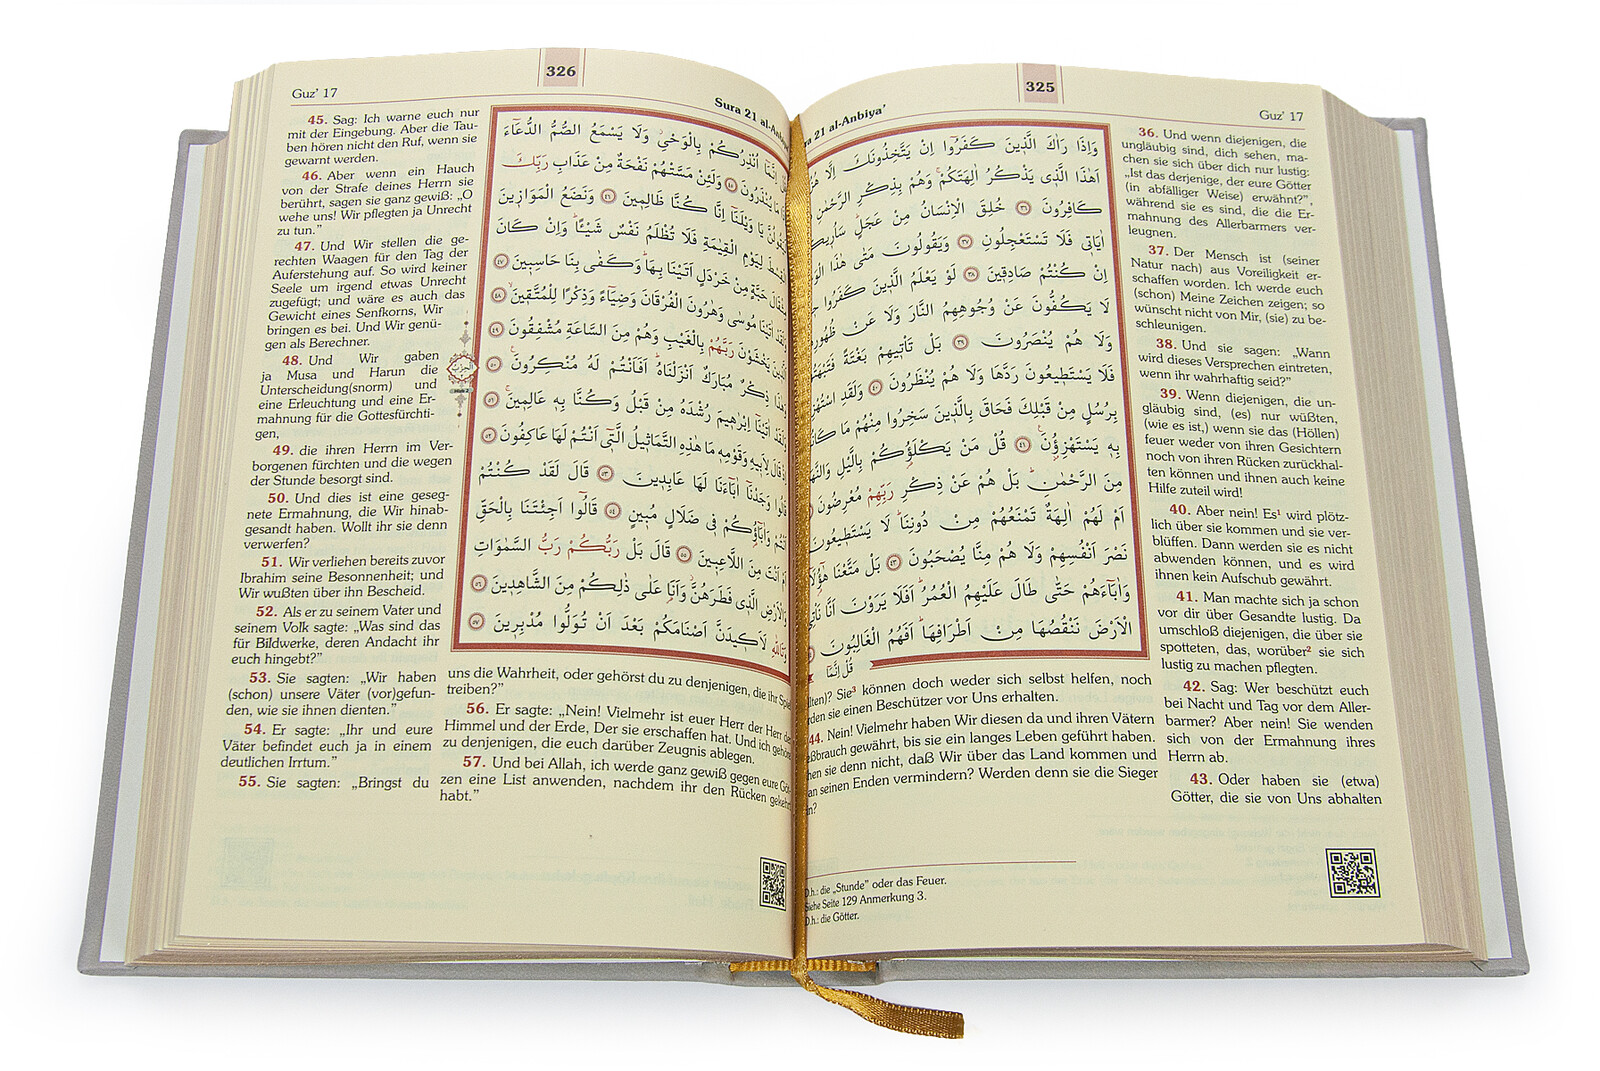 325
Guz’ 17
21 al-Anbiya’
وَاِذَا رَاٰكَ الَّذٖينَ كَفَرُٓوا اِنْ يَتَّخِذُونَكَ اِلَّا
اَهٰذَا الَّذٖي يَذْكُرُ اٰلِهَتَكُمْ وَهُمْ بِذِكْرِ الرَّحْمٰنِ
كَافِرُونَ ٣٦ خُلِقَ الْاِنْسَانُ مِنْ عَجَلٍ
اٰيَاتٖي فَلَا تَسْتَعْجِلُونِ ٣٧ وَيَقُولُونَ مَتٰى هٰذَا
اِنْ كُنْتُمْ صَادِقٖينَ ٣٨ لَوْ يَعْلَمُ الَّذٖينَ كَفَرُوا
لَا يَكُفُّونَ عَنْ وُجُوهِهِمُ النَّارَ وَلَا عَنْ
وَلَا هُمْ يُنْصَرُونَ ٣٩ بَلْ تَاْتٖيهِمْ بَغْتَةً
فَلَا يَسْتَطٖيعُونَ رَدَّهَا وَلَا هُمْ يُنْظَرُونَ ٤٠ وَلَقَدِ
بِرُسُلٍ مِنْ قَبْلِكَ فَحَاقَ بِالَّذٖينَ سَخِرُوا مِنْهُمْ مَا
بِهٖ يَسْتَهْزِؤُ۫نَ ٤١ قُلْ مَنْ يَكْلَؤُ۬كُمْ بِالَّيْلِ
مِنَ الرَّحْمٰنِ بَلْ هُمْ عَنْ ذِكْرِ رَبِّهِمْ مُعْرِضُونَ
اَمْ لَهُمْ اٰلِهَةٌ تَمْنَعُهُمْ مِنْ دُونِنَا لَا يَسْتَطٖيعُونَ
نَصْرَ اَنْفُسِهِمْ وَلَا هُمْ مِنَّا يُصْحَبُونَ ٤٣ بَلْ مَتَّعْنَا
وَاٰبَٓاءَهُمْ حَتّٰى طَالَ عَلَيْهِمُ الْعُمُرُ اَفَلَا يَرَوْنَ اَنَّا
الْاَرْضَ نَنْقُصُهَا مِنْ اَطْرَافِهَا اَفَهُمُ الْغَالِبُونَ
قُلْ اِنَّمَٓا
36. Und wenn diejenigen, die
ungläubig sind, dich sehen, ma-
chen sie sich über dich nur lustig:
„Ist das derjenige, der eure Götter
(in abfälliger Weise) erwähnt?”,
während sie es sind, die die Er-
mahnung des Allerbarmers ver-
leugnen.
37. Der Mensch ist (seiner
Natur nach) aus Voreiligkeit er-
schaffen worden. Ich werde euch
(schon) Meine Zeichen zeigen; so
wünscht nicht von Mir, (sie) zu be-
schleunigen.
38. Und sie sagen: „Wann
wird dieses Versprechen eintreten,
wenn ihr wahrhaftig seid?”
39. Wenn diejenigen, die un-
gläubig sind, (es) nur wüßten,
(wie es ist,) wenn sie das (Höllen)
feuer weder von ihren Gesichtern
noch von ihren Rücken zurückhal-
ten können und ihnen auch keine
Hilfe zuteil wird!
40. Aber nein! Es¹ wird plötz-
lich über sie kommen und sie ver-
blüffen. Dann werden sie es nicht
abwenden können, und es wird
ihnen kein Aufschub gewährt.
41. Man machte sich ja schon
vor dir über Gesandte lustig. Da
umschloß diejenigen, die über sie
spotteten, das, worüber² sie sich
lustig zu machen pflegten.
42. Sag: Wer beschützt euch
bei Nacht und Tag vor dem Aller-
barmer? Aber nein! Sie wenden
sich von der Ermahnung ihres
Herrn ab.
43. Oder haben sie (etwa)
Götter, die sie von Uns abhalten
Sie³ können doch weder sich selbst helfen, noch
sie einen Beschützer vor Uns erhalten.
44. Nein! Vielmehr haben Wir diesen da und ihren Vätern
gewährt, bis sie ein langes Leben geführt haben.
sie denn nicht, daß Wir über das Land kommen und
an seinen Enden vermindern? Werden denn sie die Sieger
D.h.: die „Stunde” oder das Feuer.
Siehe Seite 129 Anmerkung 3.
D.h.: die Götter.
326
Guz’ 17
Sura 21
اِنَّمَٓا اُنْذِرُكُمْ بِالْوَحْيِ وَلَا يَسْمَعُ الصُّمُّ الدُّعَٓاءَ
مَا يُنْذَرُونَ ٤٥ وَلَئِنْ مَسَّتْهُمْ نَفْحَةٌ مِنْ عَذَابِ رَبِّكَ
يَا وَيْلَنَٓا اِنَّا كُنَّا ظَالِمٖينَ ٤٦ وَنَضَعُ الْمَوَازٖينَ
لِيَوْمِ الْقِيٰمَةِ فَلَا تُظْلَمُ نَفْسٌ شَيْـًٔا وَاِنْ كَانَ
حَبَّةٍ مِنْ خَرْدَلٍ اَتَيْنَا بِهَا وَكَفٰى بِنَا حَاسِبٖينَ ٤٧
اٰتَيْنَا مُوسٰى وَهٰرُونَ الْفُرْقَانَ وَضِيَٓاءً وَذِكْرًا لِلْمُتَّقٖينَ ٤٨
يَخْشَوْنَ رَبَّهُمْ بِالْغَيْبِ وَهُمْ مِنَ السَّاعَةِ مُشْفِقُونَ ٤٩
ذِكْرٌ مُبَارَكٌ اَنْزَلْنَاهُ اَفَاَنْتُمْ لَهُ مُنْكِرُونَ ٥٠
اٰتَيْنَٓا اِبْرٰهٖيمَ رُشْدَهُ مِنْ قَبْلُ وَكُنَّا بِهٖ عَالِمٖينَ ٥١
قَالَ لِاَبٖيهِ وَقَوْمِهٖ مَا هٰذِهِ التَّمَاثٖيلُ الَّتٖٓي اَنْتُمْ لَهَا عَاكِفُونَ ٥٢
وَجَدْنَٓا اٰبَٓاءَنَا لَهَا عَابِدٖينَ ٥٣ قَالَ لَقَدْ كُنْتُمْ
اَنْتُمْ وَاٰبَٓاؤُ۬كُمْ فٖي ضَلَالٍ مُبٖينٍ ٥٤ قَالُٓوا اَجِئْتَنَا بِالْحَقِّ
اَنْتَ مِنَ اللَّاعِبٖينَ ٥٥ قَالَ بَلْ رَبُّكُمْ رَبُّ السَّمٰوَاتِ
وَالْاَرْضِ الَّذٖي فَطَرَهُنَّ وَاَنَا۬ عَلٰى ذٰلِكُمْ مِنَ الشَّاهِدٖينَ ٥٦
وَتَاللّٰهِ لَاَكٖيدَنَّ اَصْنَامَكُمْ بَعْدَ اَنْ تُوَلُّوا مُدْبِرٖينَ ٥٧
45. Sag: Ich warne euch nur
mit der Eingebung. Aber die Tau-
ben hören nicht den Ruf, wenn sie
gewarnt werden.
46. Aber wenn ein Hauch
von der Strafe deines Herrn sie
berührt, sagen sie ganz gewiß: „O
wehe uns! Wir pflegten ja Unrecht
zu tun.”
47. Und Wir stellen die ge-
rechten Waagen für den Tag der
Auferstehung auf. So wird keiner
Seele um irgend etwas Unrecht
zugefügt; und wäre es auch das
Gewicht eines Senfkorns, Wir
bringen es bei. Und Wir genü-
gen als Berechner.
48. Und Wir gaben
ja Musa und Harun die
Unterscheidung(snorm) und
eine Erleuchtung und eine Er-
mahnung für die Gottesfürchti-
gen,
49. die ihren Herrn im Ver-
borgenen fürchten und die wegen
der Stunde besorgt sind.
50. Und dies ist eine geseg-
nete Ermahnung, die Wir hinab-
gesandt haben. Wollt ihr sie denn
verwerfen?
51. Wir verliehen bereits zuvor
Ibrahim seine Besonnenheit; und
Wir wußten über ihn Bescheid.
52. Als er zu seinem Vater und
seinem Volk sagte: „Was sind das
für Bildwerke, deren Andacht ihr
euch hingebt?”
53. Sie sagten: „Wir haben
(schon) unsere Väter (vor)gefun-
den, wie sie ihnen dienten.”
54. Er sagte: „Ihr und eure
Väter befindet euch ja in einem
deutlichen Irrtum.”
55. Sie sagten: „Bringst du
uns die Wahrheit, oder gehörst du zu denjenigen, die ihr
treiben?”
56. Er sagte: „Nein! Vielmehr ist euer Herr der Herr der
Himmel und der Erde, Der sie erschaffen hat. Und ich gehöre
zu denjenigen, die euch darüber Zeugnis ablegen.
57. Und bei Allah, ich werde ganz gewiß gegen eure
zen eine List anwenden, nachdem ihr den Rücken gekehrt
habt.”